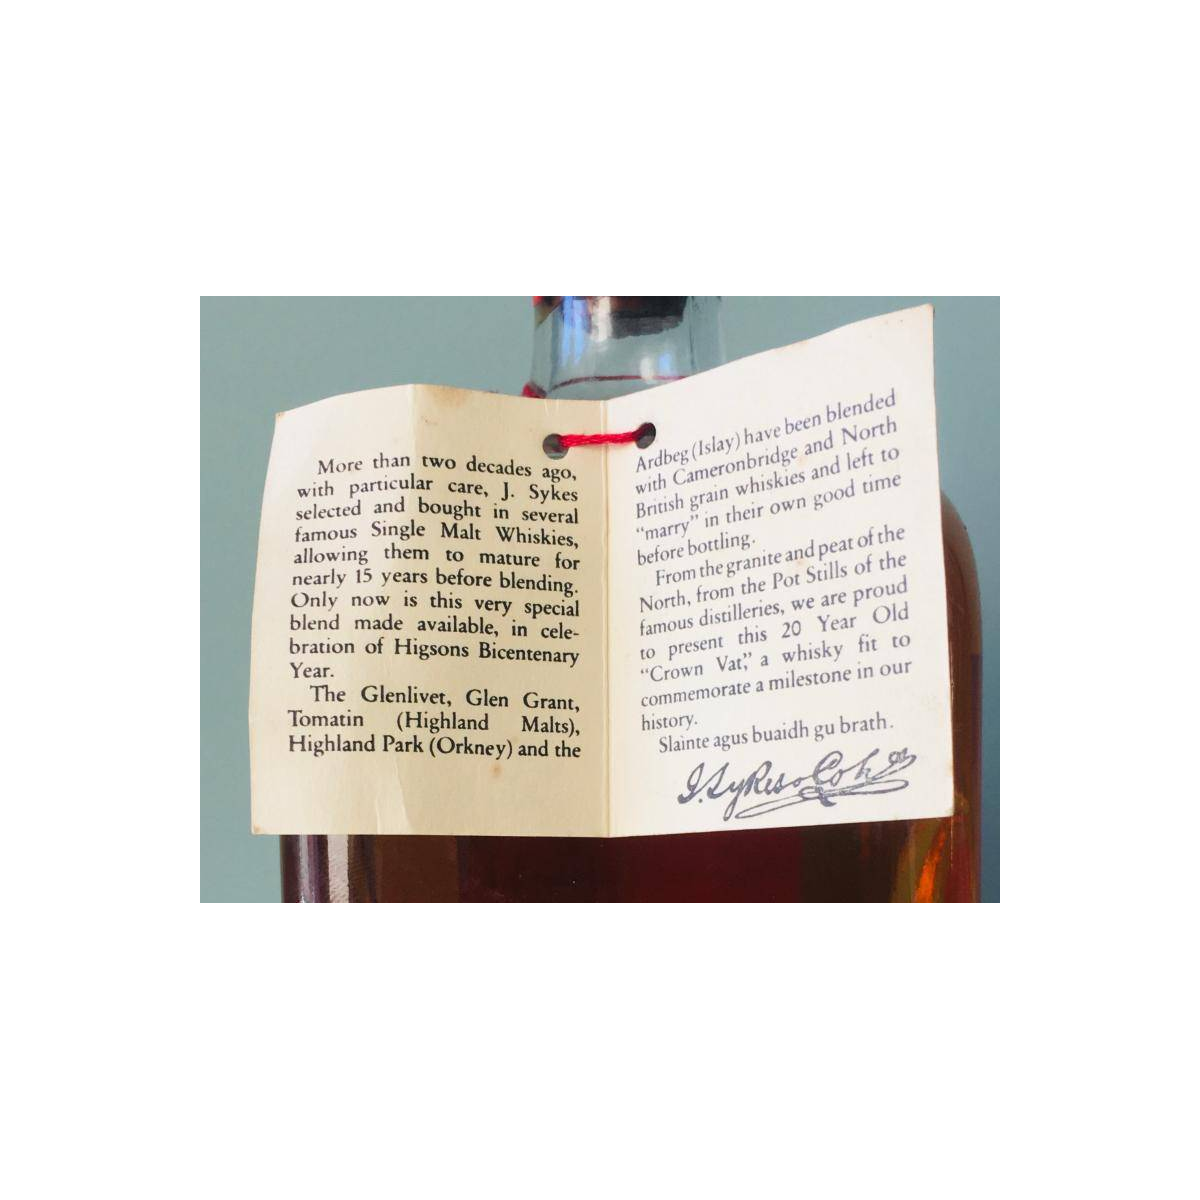 More than two decades ago,
with particular care, J. Sykes
selected and bought in several
famous Single Malt Whiskies,
allowing them to mature for
nearly 15 years before blending.
Only now is this very special
blend made available, in cele-
bration of Higsons Bicentenary
Year.
The Glenlivet, Glen Grant,
Tomatin (Highland Malts),
Highland Park (Orkney) and the
Ardbeg (Islay) have been blended
with Cameronbridge and North
British grain whiskies and left to
“marry” in their own good time
before bottling.
From the granite and peat of the
North, from the Pot Stills of the
famous distilleries, we are proud
to present this 20 Year Old
“Crown Vat,” a whisky fit to
commemorate a milestone in our
history.
Slainte agus buaidh gu brath.
J. Sykes & Co